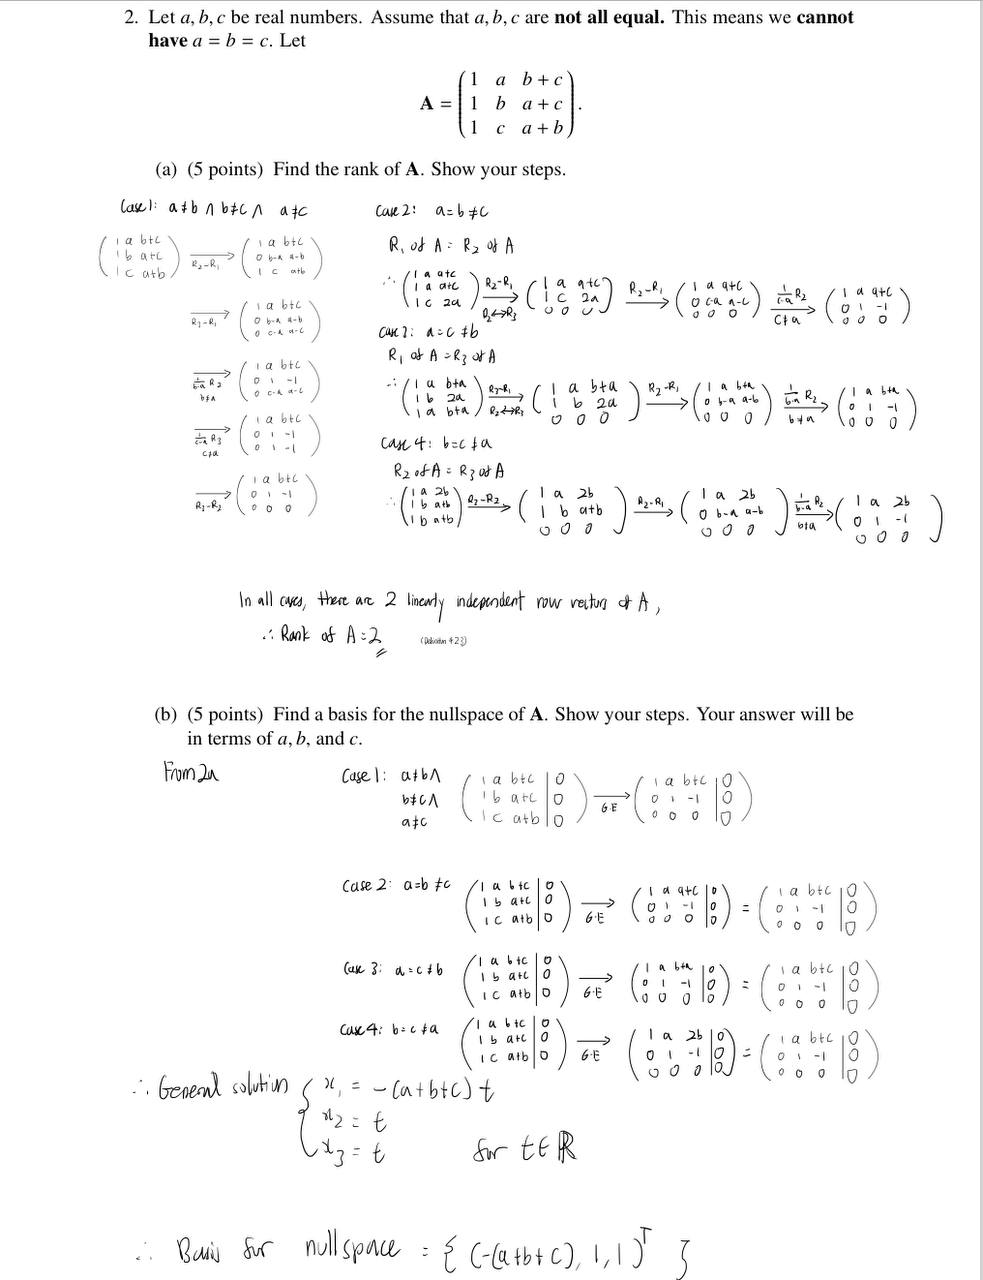 2. Let a, b, c be real numbers. Assume that a, b, c are not all equal. This means we cannot
have a = b = c. Let
A = (1 a b + c
1 b a + c
1 c a + b).
(a) (5 points) Find the rank of A. Show your steps.
Case 1: a≠b ∧ b≠c ∧ a≠c
(1 a b+c
1 b a+c
1 c a+b) R₂-R₁→ (1 a b+c
0 b-a a-b
1 c a+b)
R₃-R₁→ (1 a b+c
0 b-a a-b
0 c-a a-c)
1/(b-a) R₂ b≠a → (1 a b+c
0 1 -1
0 c-a a-c)
1/(c-a) R₃ c≠a → (1 a b+c
0 1 -1
0 1 -1)
R₃-R₂→ (1 a b+c
0 1 -1
0 0 0)
Case 2: a=b≠c
R₁ of A = R₂ of A
∴ (1 a a+c
1 a a+c
1 c 2a) R₂-R₁ R₂↔R₃ → (1 a a+c
1 c 2a
0 0 0) R₂-R₁→ (1 a a+c
0 c-a a-c
0 0 0) 1/(c-a) R₂ c≠a → (1 a a+c
0 1 -1
0 0 0)
Case 3: a=c≠b
R₁ of A = R₃ of A
∴ (1 a b+a
1 b 2a
1 a b+a) R₃-R₁ → (1 a b+a
1 b 2a
0 0 0) R₂-R₁→ (1 a b+a
0 b-a a-b
0 0 0) 1/(b-a) R₂ b≠a → (1 a b+a
0 1 -1
0 0 0)
Case 4: b=c≠a
R₂ of A = R₃ of A
∴ (1 a 2b
1 b a+b
1 b a+b) R₃-R₂→ (1 a 2b
1 b a+b
0 0 0) R₂-R₁→ (1 a 2b
0 b-a a-b
0 0 0) 1/(b-a) R₂ b≠a → (1 a 2b
0 1 -1
0 0 0)
In all cases, there are 2 linearly independent row vectors of A,
∴ Rank of A = 2 (Definition 4.2.3)
(b) (5 points) Find a basis for the nullspace of A. Show your steps. Your answer will be
in terms of a, b, and c.
From 2a
Case 1: a≠b∧
b≠c∧
a≠c
(1 a b+c | 0
1 b a+c | 0
1 c a+b | 0) G.E → (1 a b+c | 0
0 1 -1 | 0
0 0 0 | 0)
Case 2: a=b≠c (1 a b+c | 0
1 b a+c | 0
1 c a+b | 0) G.E → (1 a a+c | 0
0 1 -1 | 0
0 0 0 | 0) = (1 a b+c | 0
0 1 -1 | 0
0 0 0 | 0)
Case 3: a=c≠b (1 a b+c | 0
1 b a+c | 0
1 c a+b | 0) G.E → (1 a b+a | 0
0 1 -1 | 0
0 0 0 | 0) = (1 a b+c | 0
0 1 -1 | 0
0 0 0 | 0)
Case 4: b=c≠a (1 a b+c | 0
1 b a+c | 0
1 c a+b | 0) G.E → (1 a 2b | 0
0 1 -1 | 0
0 0 0 | 0) = (1 a b+c | 0
0 1 -1 | 0
0 0 0 | 0)
∴ General solution { x₁ = -(a+b+c)t
x₂ = t
x₃ = t for t∈ℝ
∴ Basis for nullspace = { (-(a+b+c), 1, 1)ᵀ }